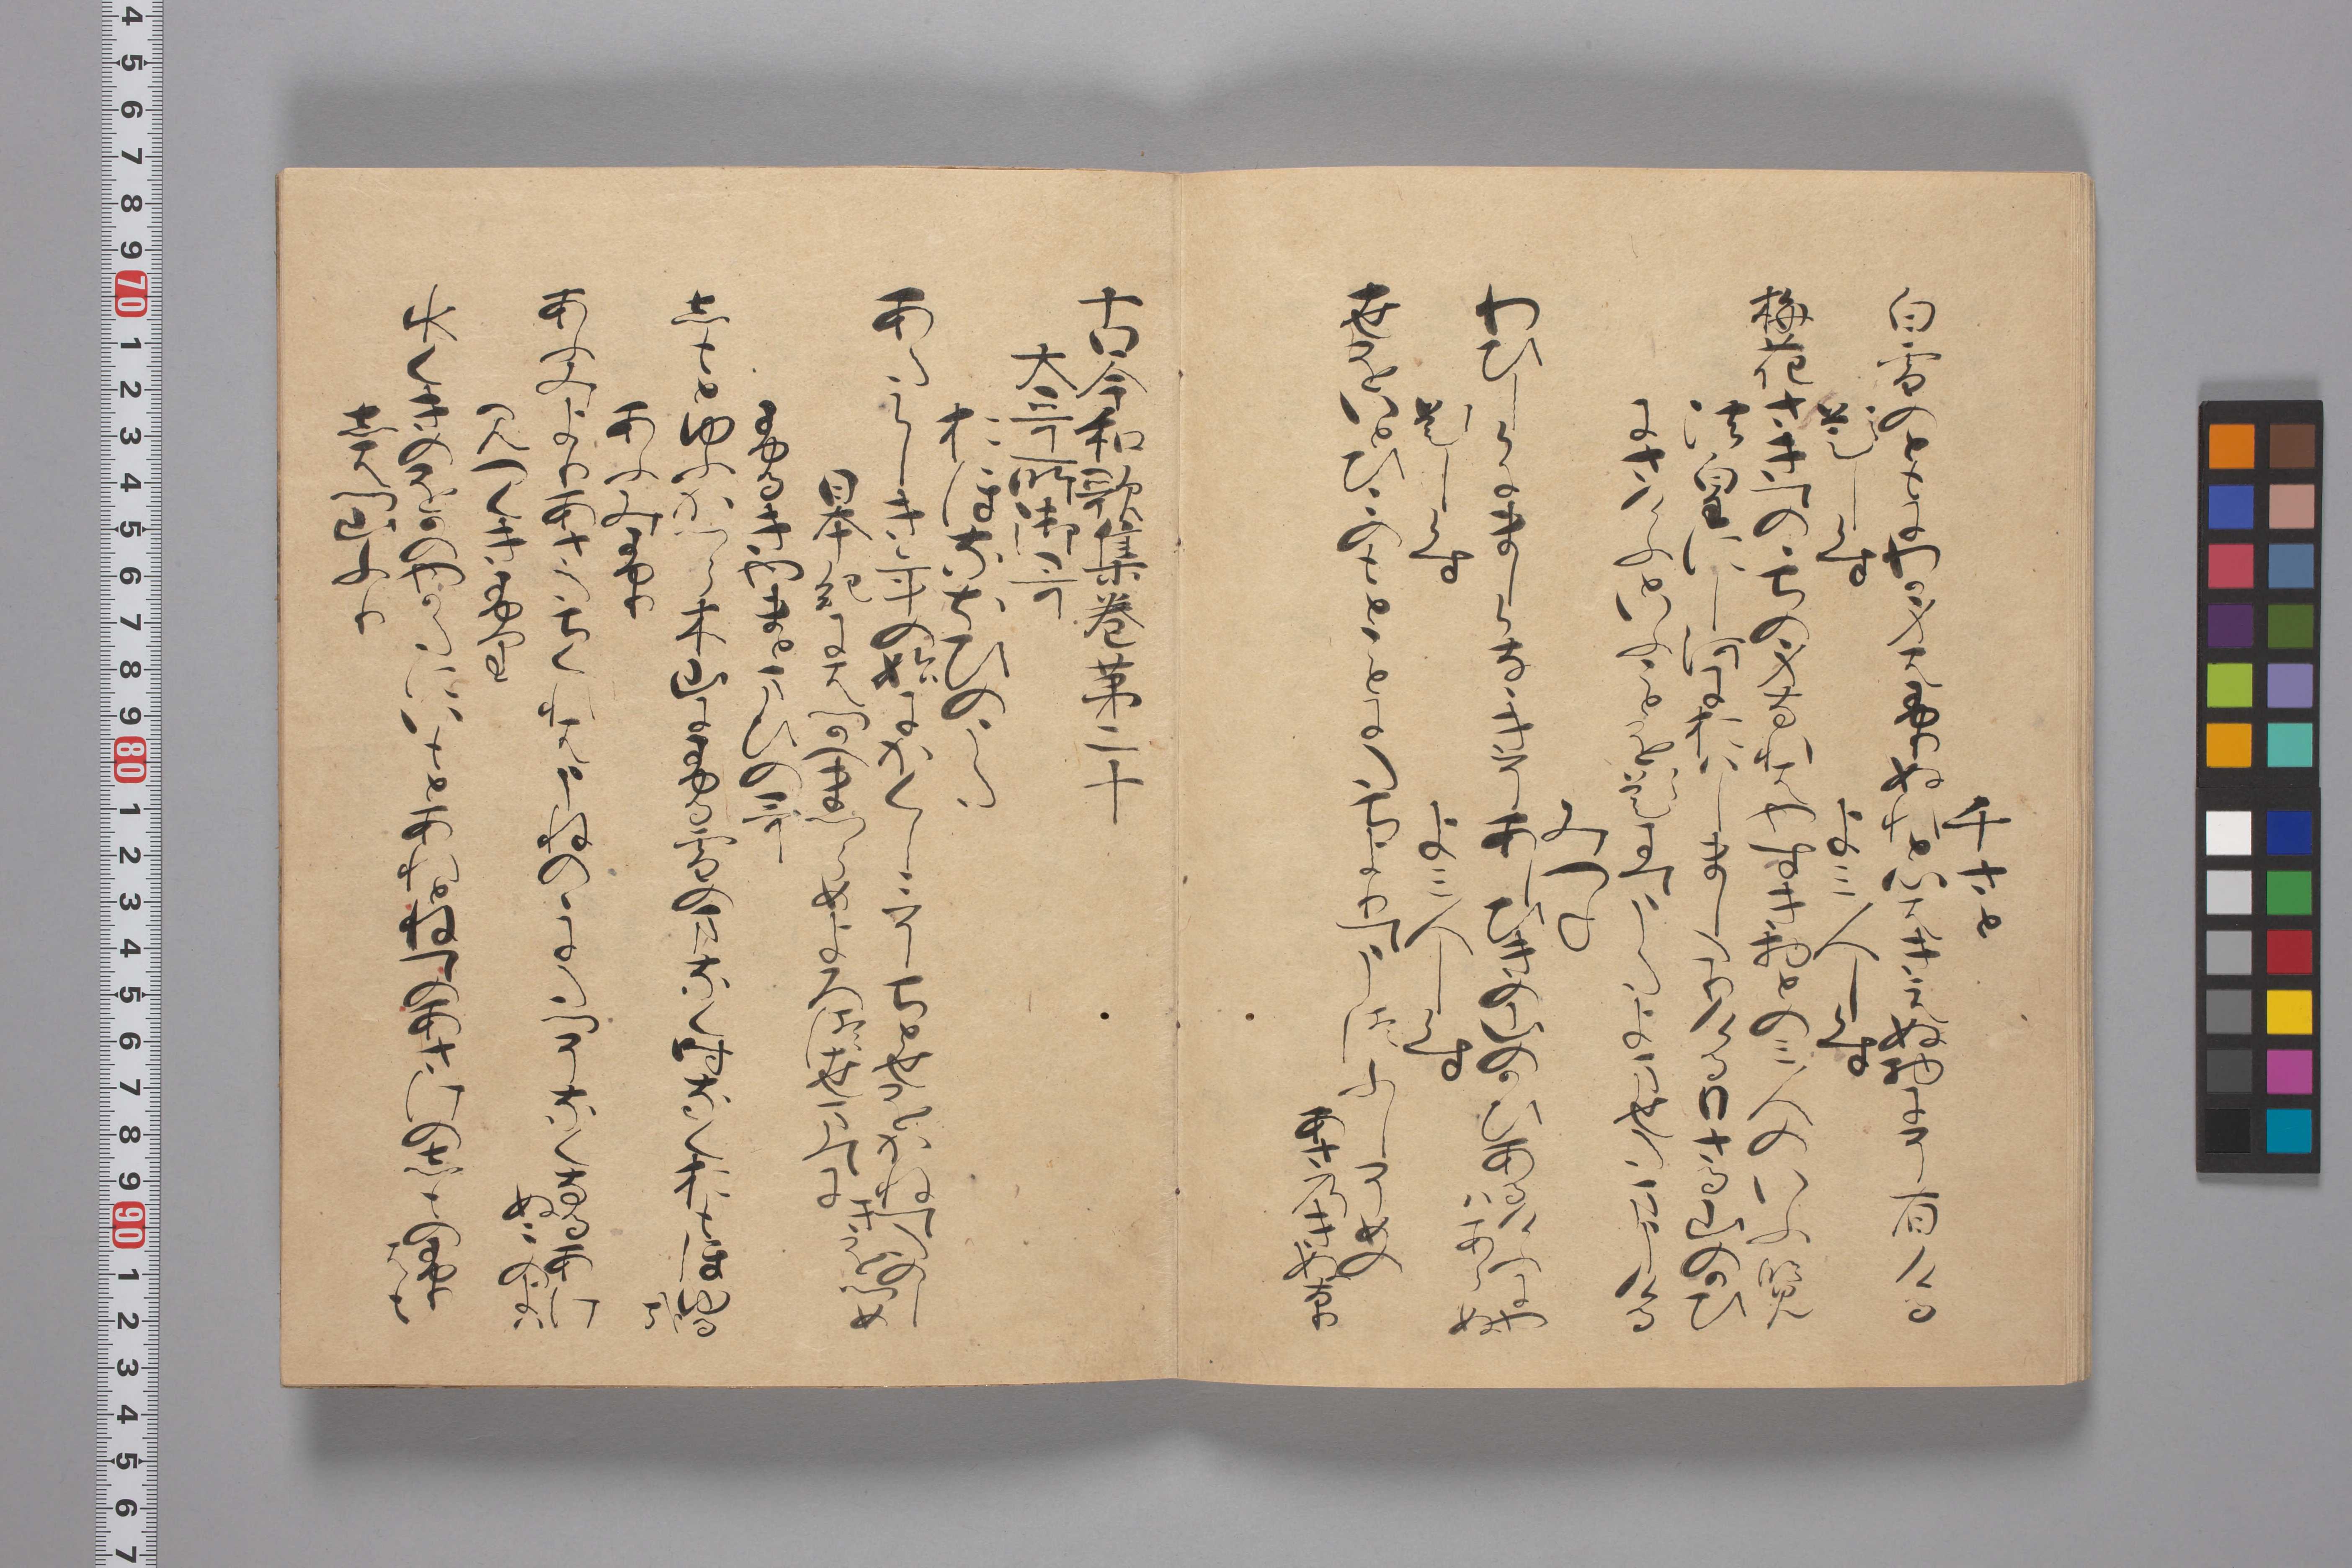 千さと
白雪のともにわか身はふりぬれと心はきえぬ物にそありける
題しらす　よみ人しらす
梅花さきてののちの身なれはやすき物とのみ人のいふらん
法皇にし河におはしましたりける日さる山のかひ
にさけふといふことを題にてよませたまうける
みつね
わひしらにましらななきそあしひきの山のかひある
けふにやはあらぬ
題しらす　よみ人しらす
世をいとひこのもとことにたちよりてうつふしそめの
あさのきぬなり
古今和歌集巻第二十
大哥所御哥
おほなほひのうた
あたらしき年の始にかくしこそちとせをかねてたのしき
をつめ
日本紀にはつかへまつらめよろつよまてに
ふるきやまとまひのうた
しもとゆふかつらき山にふる雪のまなく時なくおもほゆる
かな
あふみふり
近江よりあさたちくれはうねののにたつそなくなるあけぬ
この夜は
みつくきふり
水くきのをかのやかたにいもとあれとねてのあさけの霜の
ふりはも
しはつ山ふり